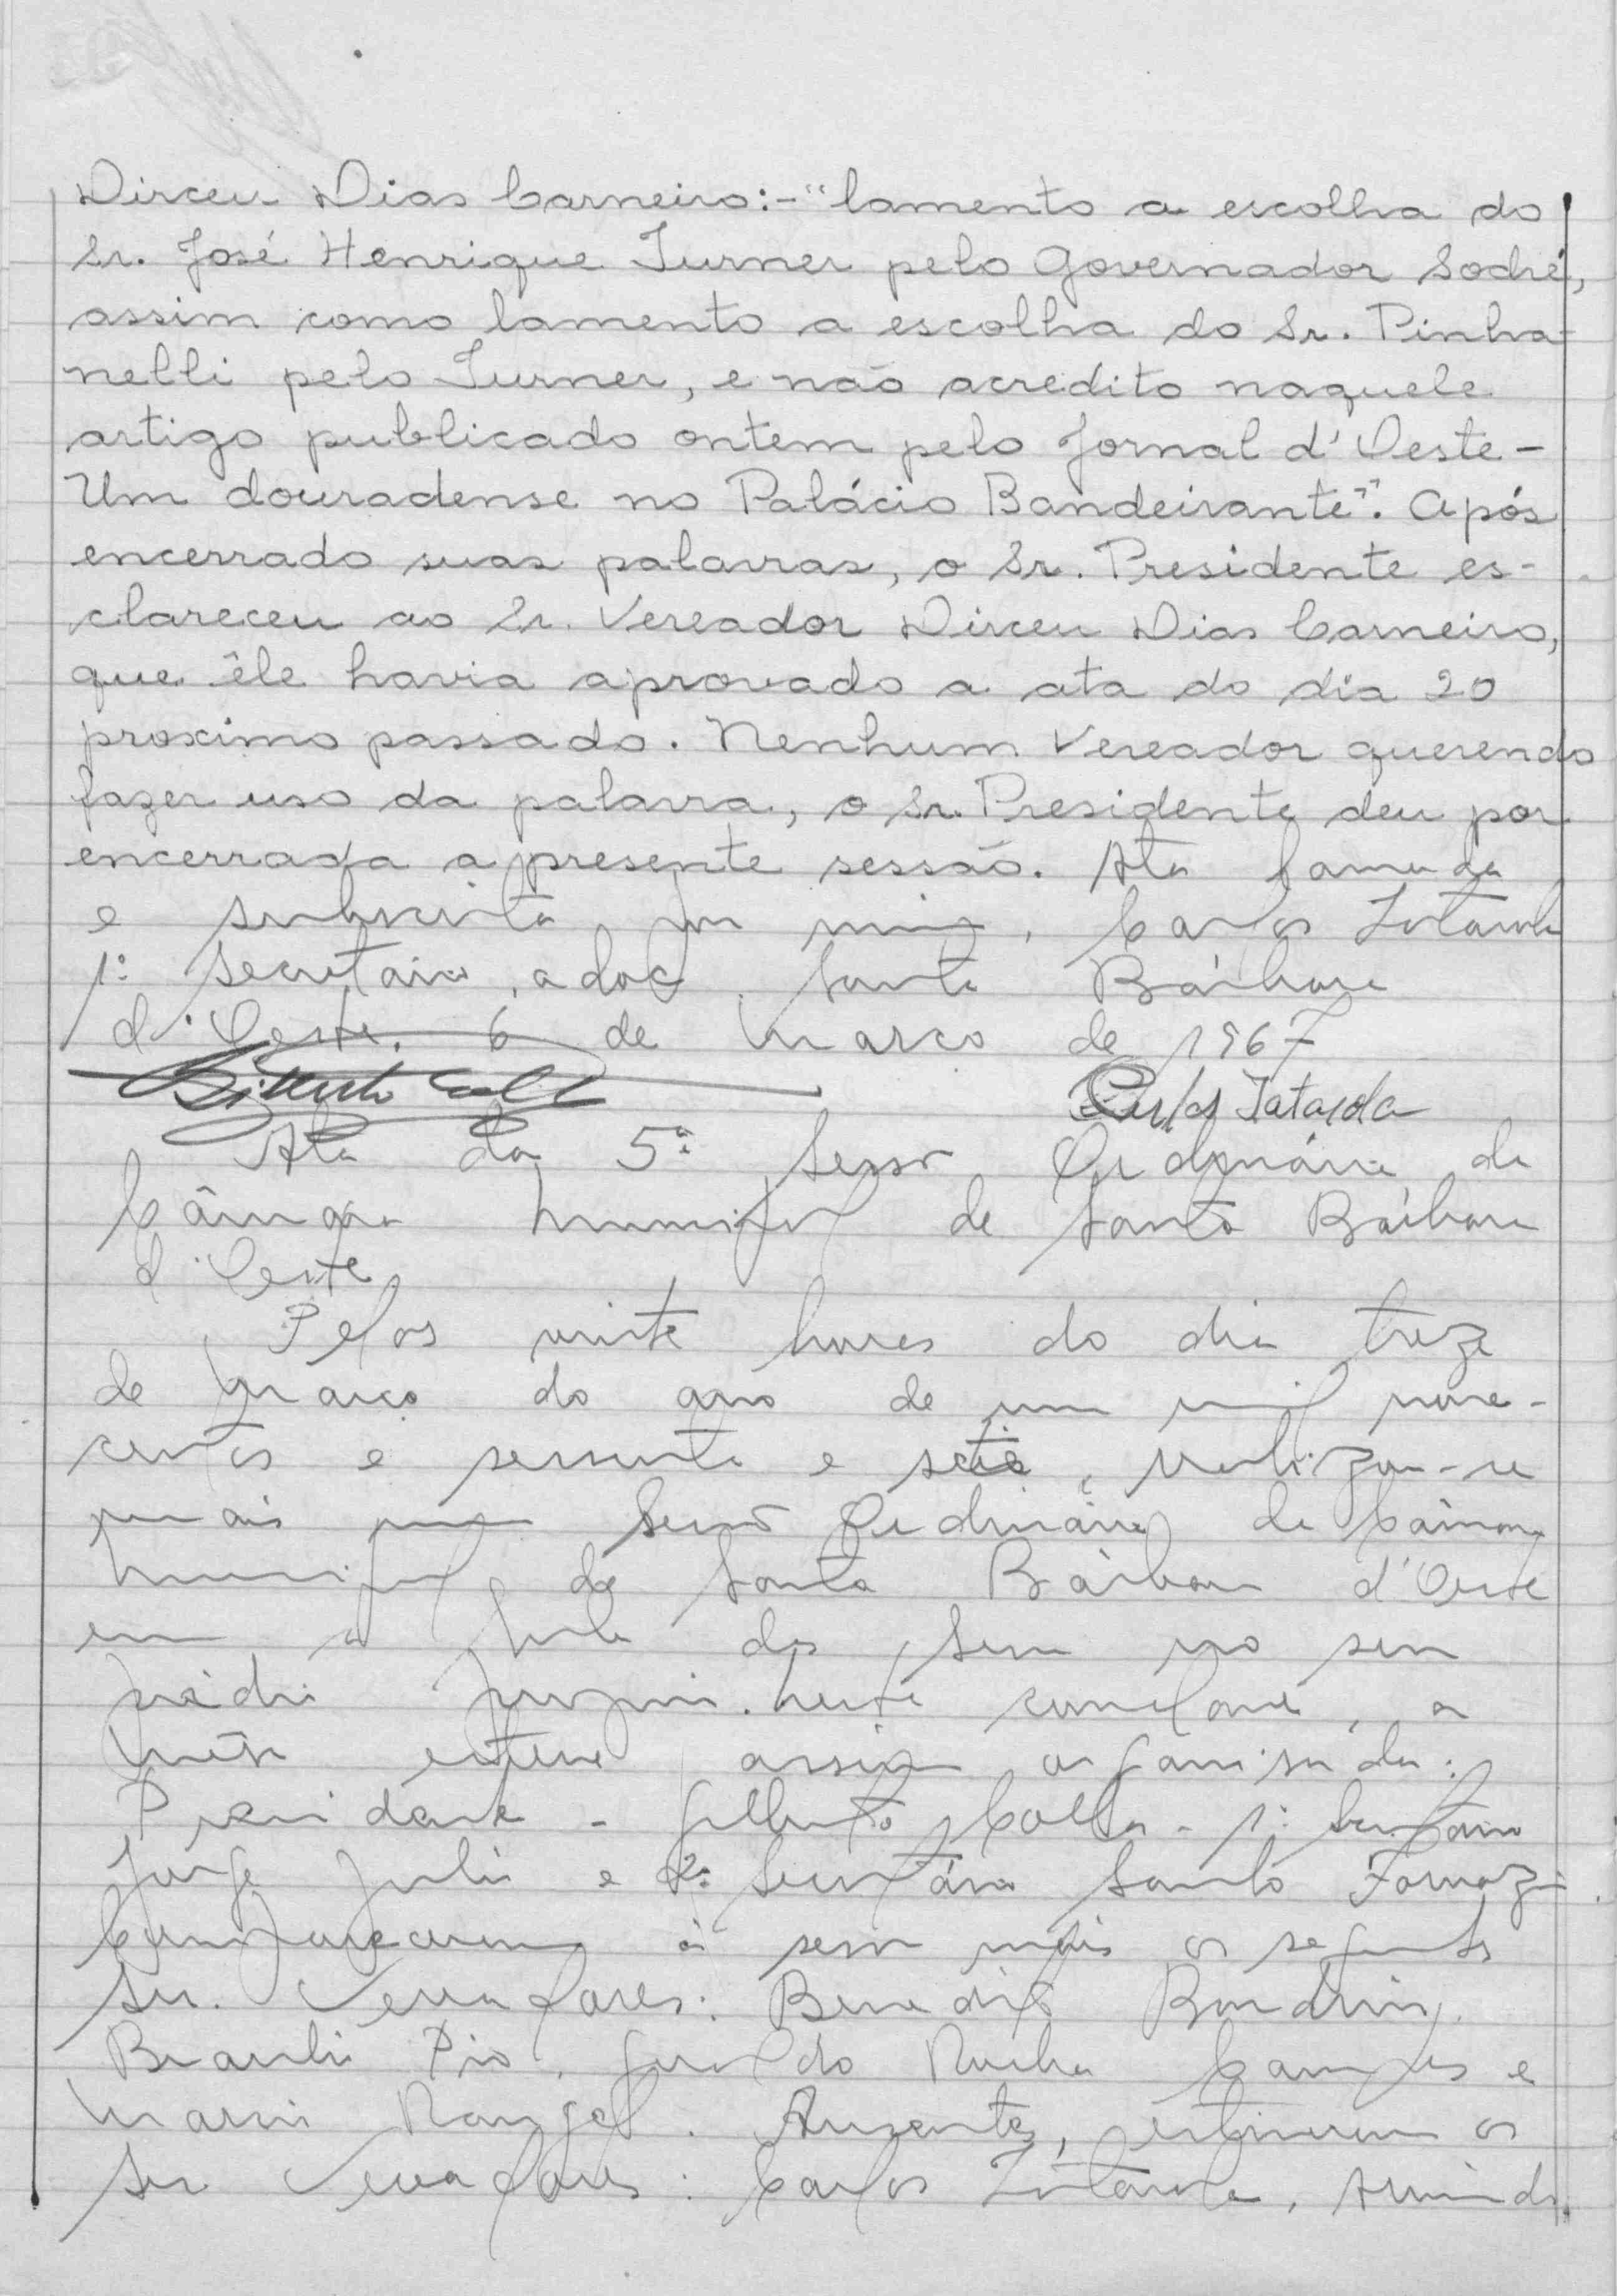 Dirceu Dias Carneiro:- "lamento a escolha do
Sr. José Henrique Turner pelo Governador Sodré,
assim como lamento a escolha do Sr. Pinha-
nelli pelo Turner, e não acredito naquele
artigo publicado ontem pelo Jornal d'Oeste -
Um douradense no Palácio Bandeirante". Após
encerrado suas palavras, o Sr. Presidente es-
clareceu ao Sr. Vereador Dirceu Dias Carneiro,
que êle havia aprovado a ata do dia 20
proximo passado. Nenhum Vereador querendo
fazer uso da palavra, o Sr. Presidente deu por
encerrada a presente sessão. Ata
e subscrita por mim, Carlos
1º Secretário, adoc. Santa Bárbara
d'Oeste, 6 de Março de 1967
Ata da 5ª Sessão Ordinária da
Câmara Municipal de Santa Bárbara
d'Oeste
Pelas vinte horas do dia treze
de Março do ano de um mil nove-
centos e sessenta e sete, realizou-se
mais uma Sessão Ordinária da Câmara
Municipal de Santa Bárbara d'Oeste
em a sala das Sessões no seu
prédio próprio. Nesta, a
Mesa esteve assim organisada:
Presidente - Gilberto Colla - 1º Secretário
Jorge Juli e 2º Secretário Santo Fornazin
Compareceram à sessão mais os seguintes
Srs. Vereadores: Benedito
Braulio Pio, Geraldo Rocha Campos e
Mario Rangel. Ausentes, estiveram os
Srs. Vereadores: Carlos, Armindo